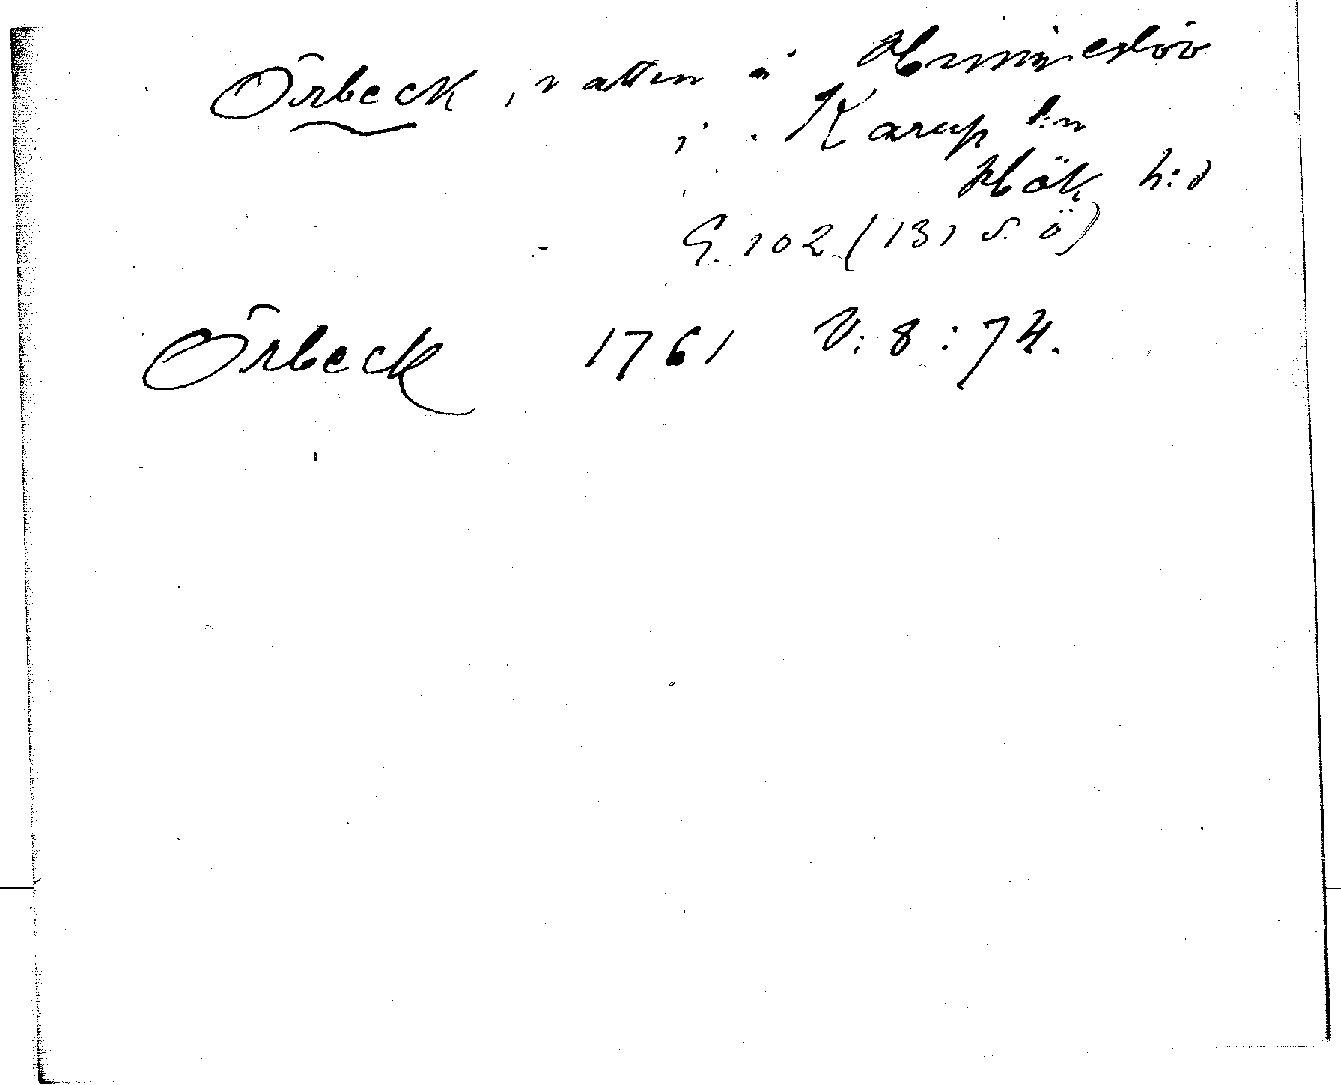 Örbeck, vatten å Hemmeslöv
i Karup s:n
Hök h:d
G. 102 (131 S. ö)
Örbeck 1761 V: 8: 74.